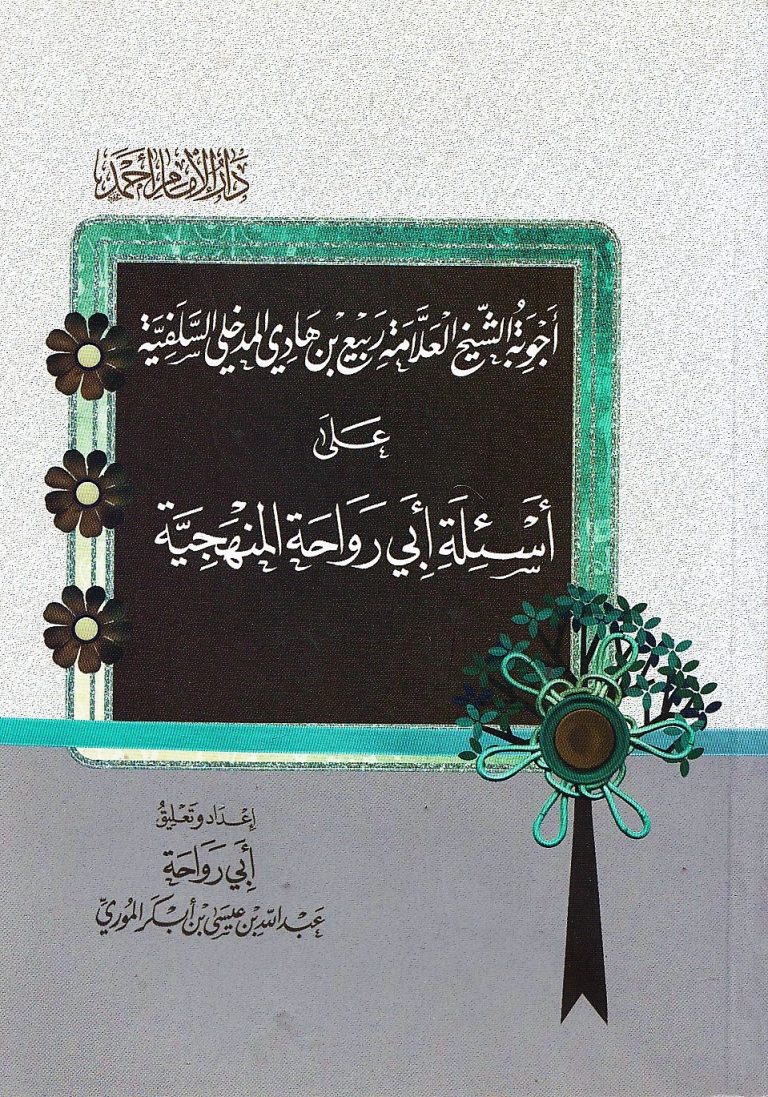 دَارُ الإِمَامِ أَحْمَدَ
أَجْوِبَةُ الشَّيْخِ الْعَلَّامَةِ رَبِيْعِ بْنِ هَادِي المدخلي السَّلَفِيَّة
عَلَىَ
أَسْئِلَةِ أَبِي رَوَاحَة المَنْهَجِيَّة
إِعْدَاد وتَعْلِيقُ
أَبِي رَوَاحَة
عَبْدِ اللهِ بْنِ عِيسَى بْنِ أَبْكَر المُورِيِّ